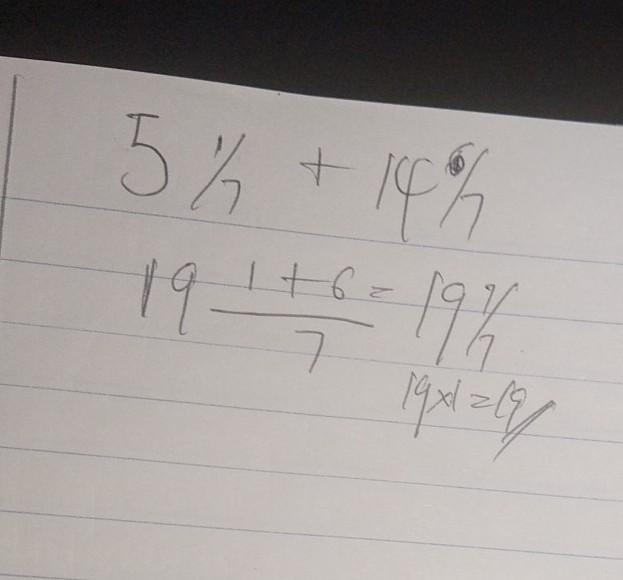 5 1/7 + 14 6/7
19 1+6/7 = 19 7/7
19x1=19//